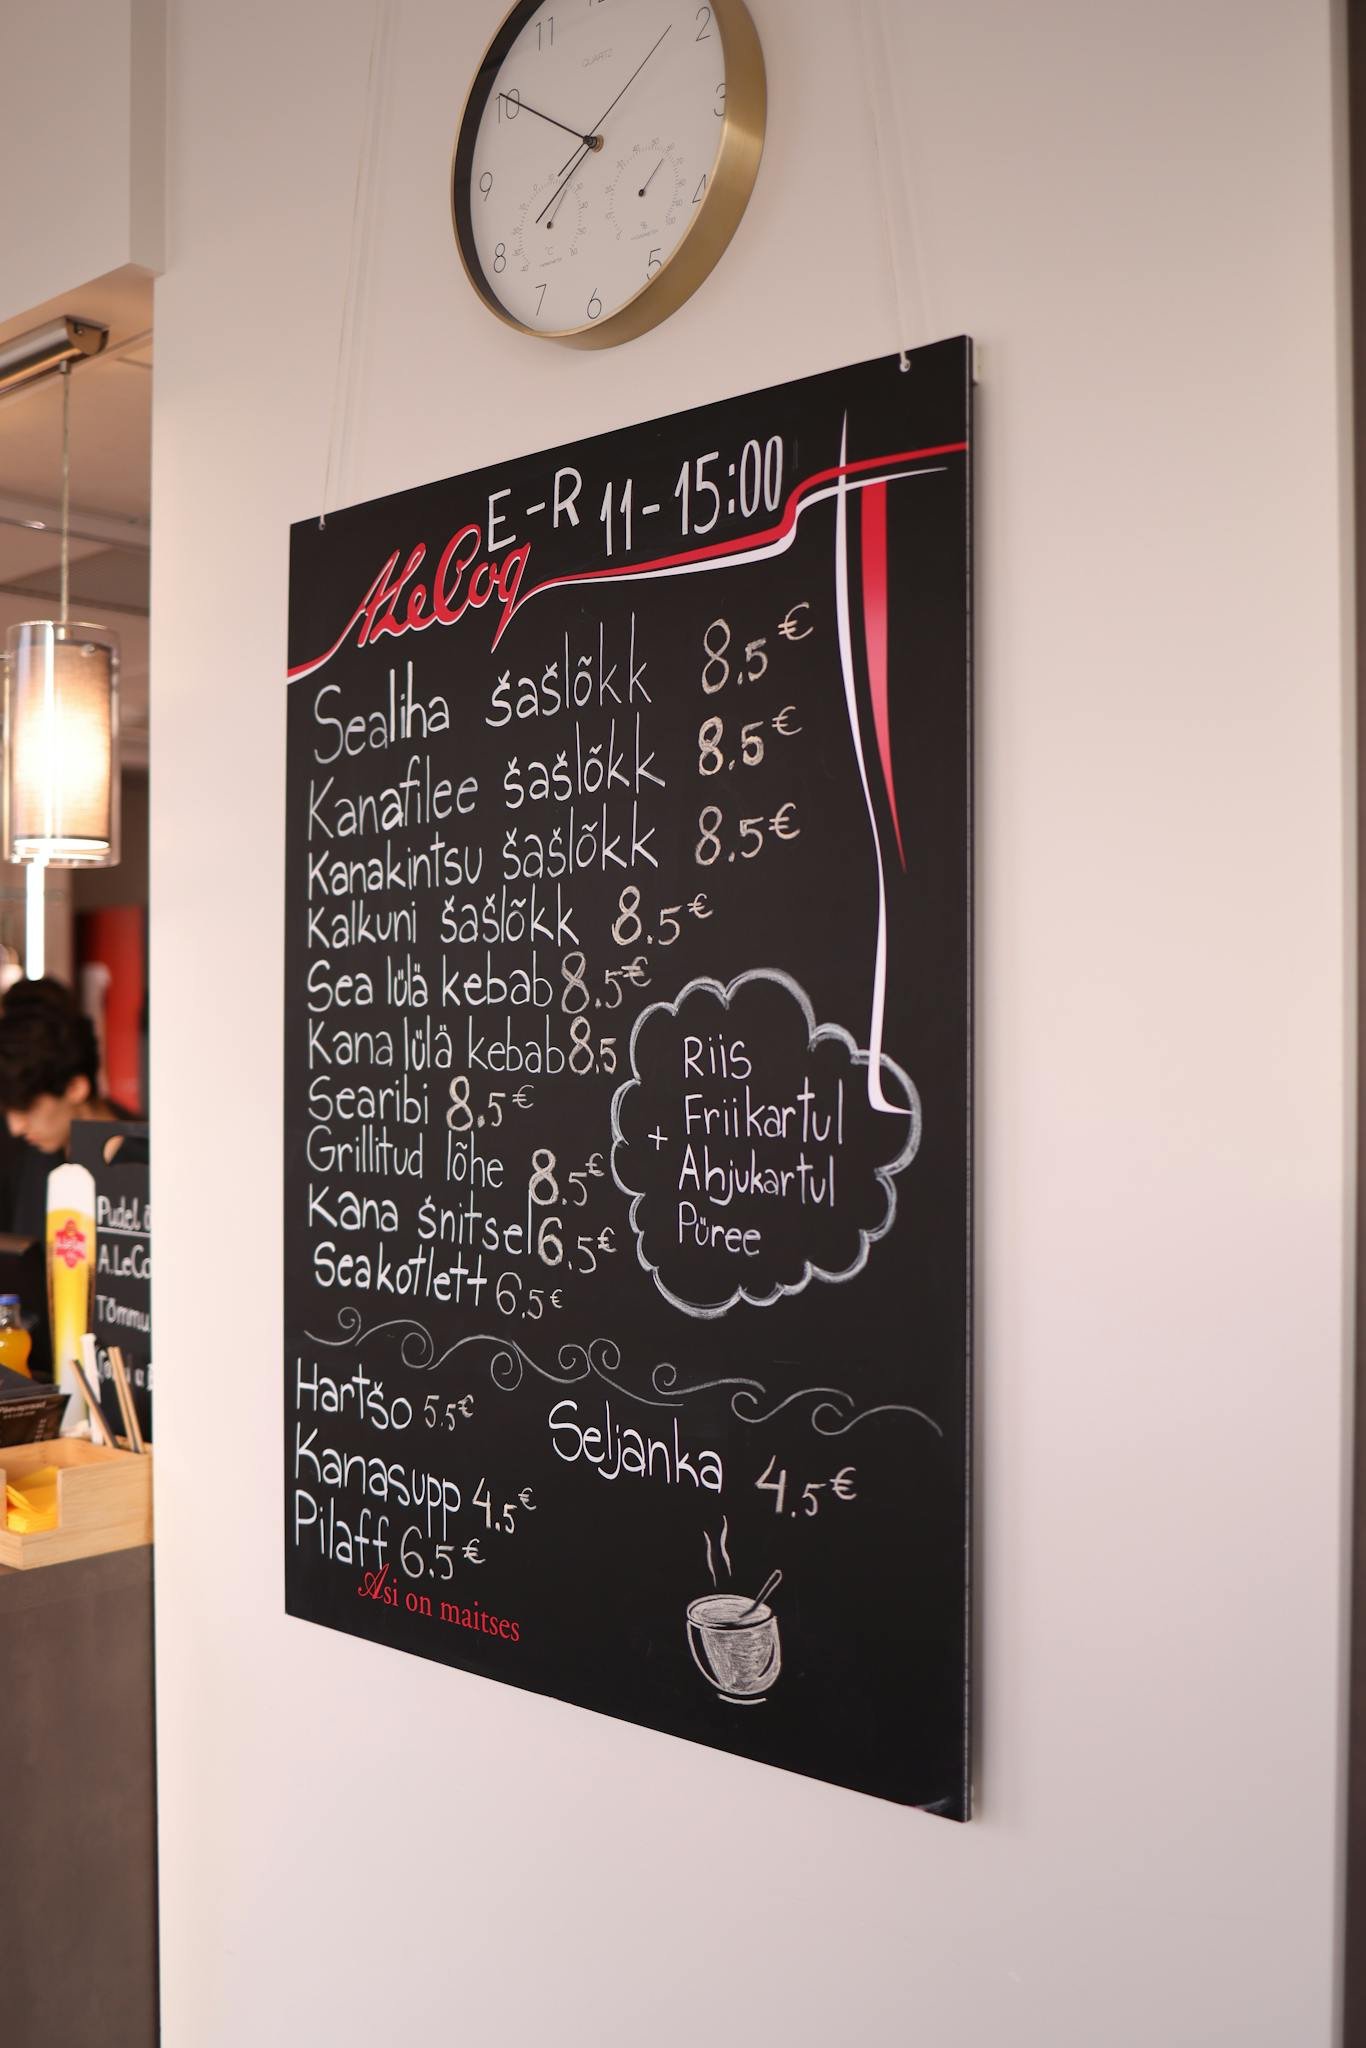 11
2
QUARTZ
10
3
9
4
8
5
7
6
E-R 11-15:00
A.LeCoq
Sealiha šašlõkk 8.5€
Kanafilee šašlõkk 8.5€
Kanakintsu šašlõkk 8.5€
Kalkuni šašlõkk 8.5€
Sea lülä kebab 8.5€
Kana lülä kebab 8.5
Searibi 8.5€
Grillitud lõhe 8.5€
Kana šnitsel 6.5€
Seakotlett 6.5€
Riis
Friikartul
+ Ahjukartul
Püree
Hartšo 5.5€
Seljanka 4.5€
Kanasupp 4.5€
Pilaff 6.5€
Asi on maitses
Pudel
A.LeCo
Tõmmu